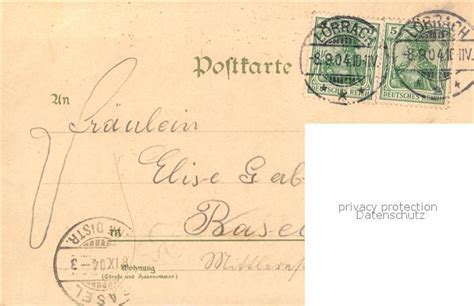 LÖRRACH
-8.9.04.10-11V.
* *
LÖRRACH
-8.9.04.10-11V.
* *
5
DEUTSCHES REICH
DEUTSCHES REICH
Postkarte
An
Fräulein
Elise Gab
privacy protection
Datenschutz
in Basel
Wohnung
(Straße und Hausnummer)
Mittlern
BASEL
DISTR.
8.IX.04.-3